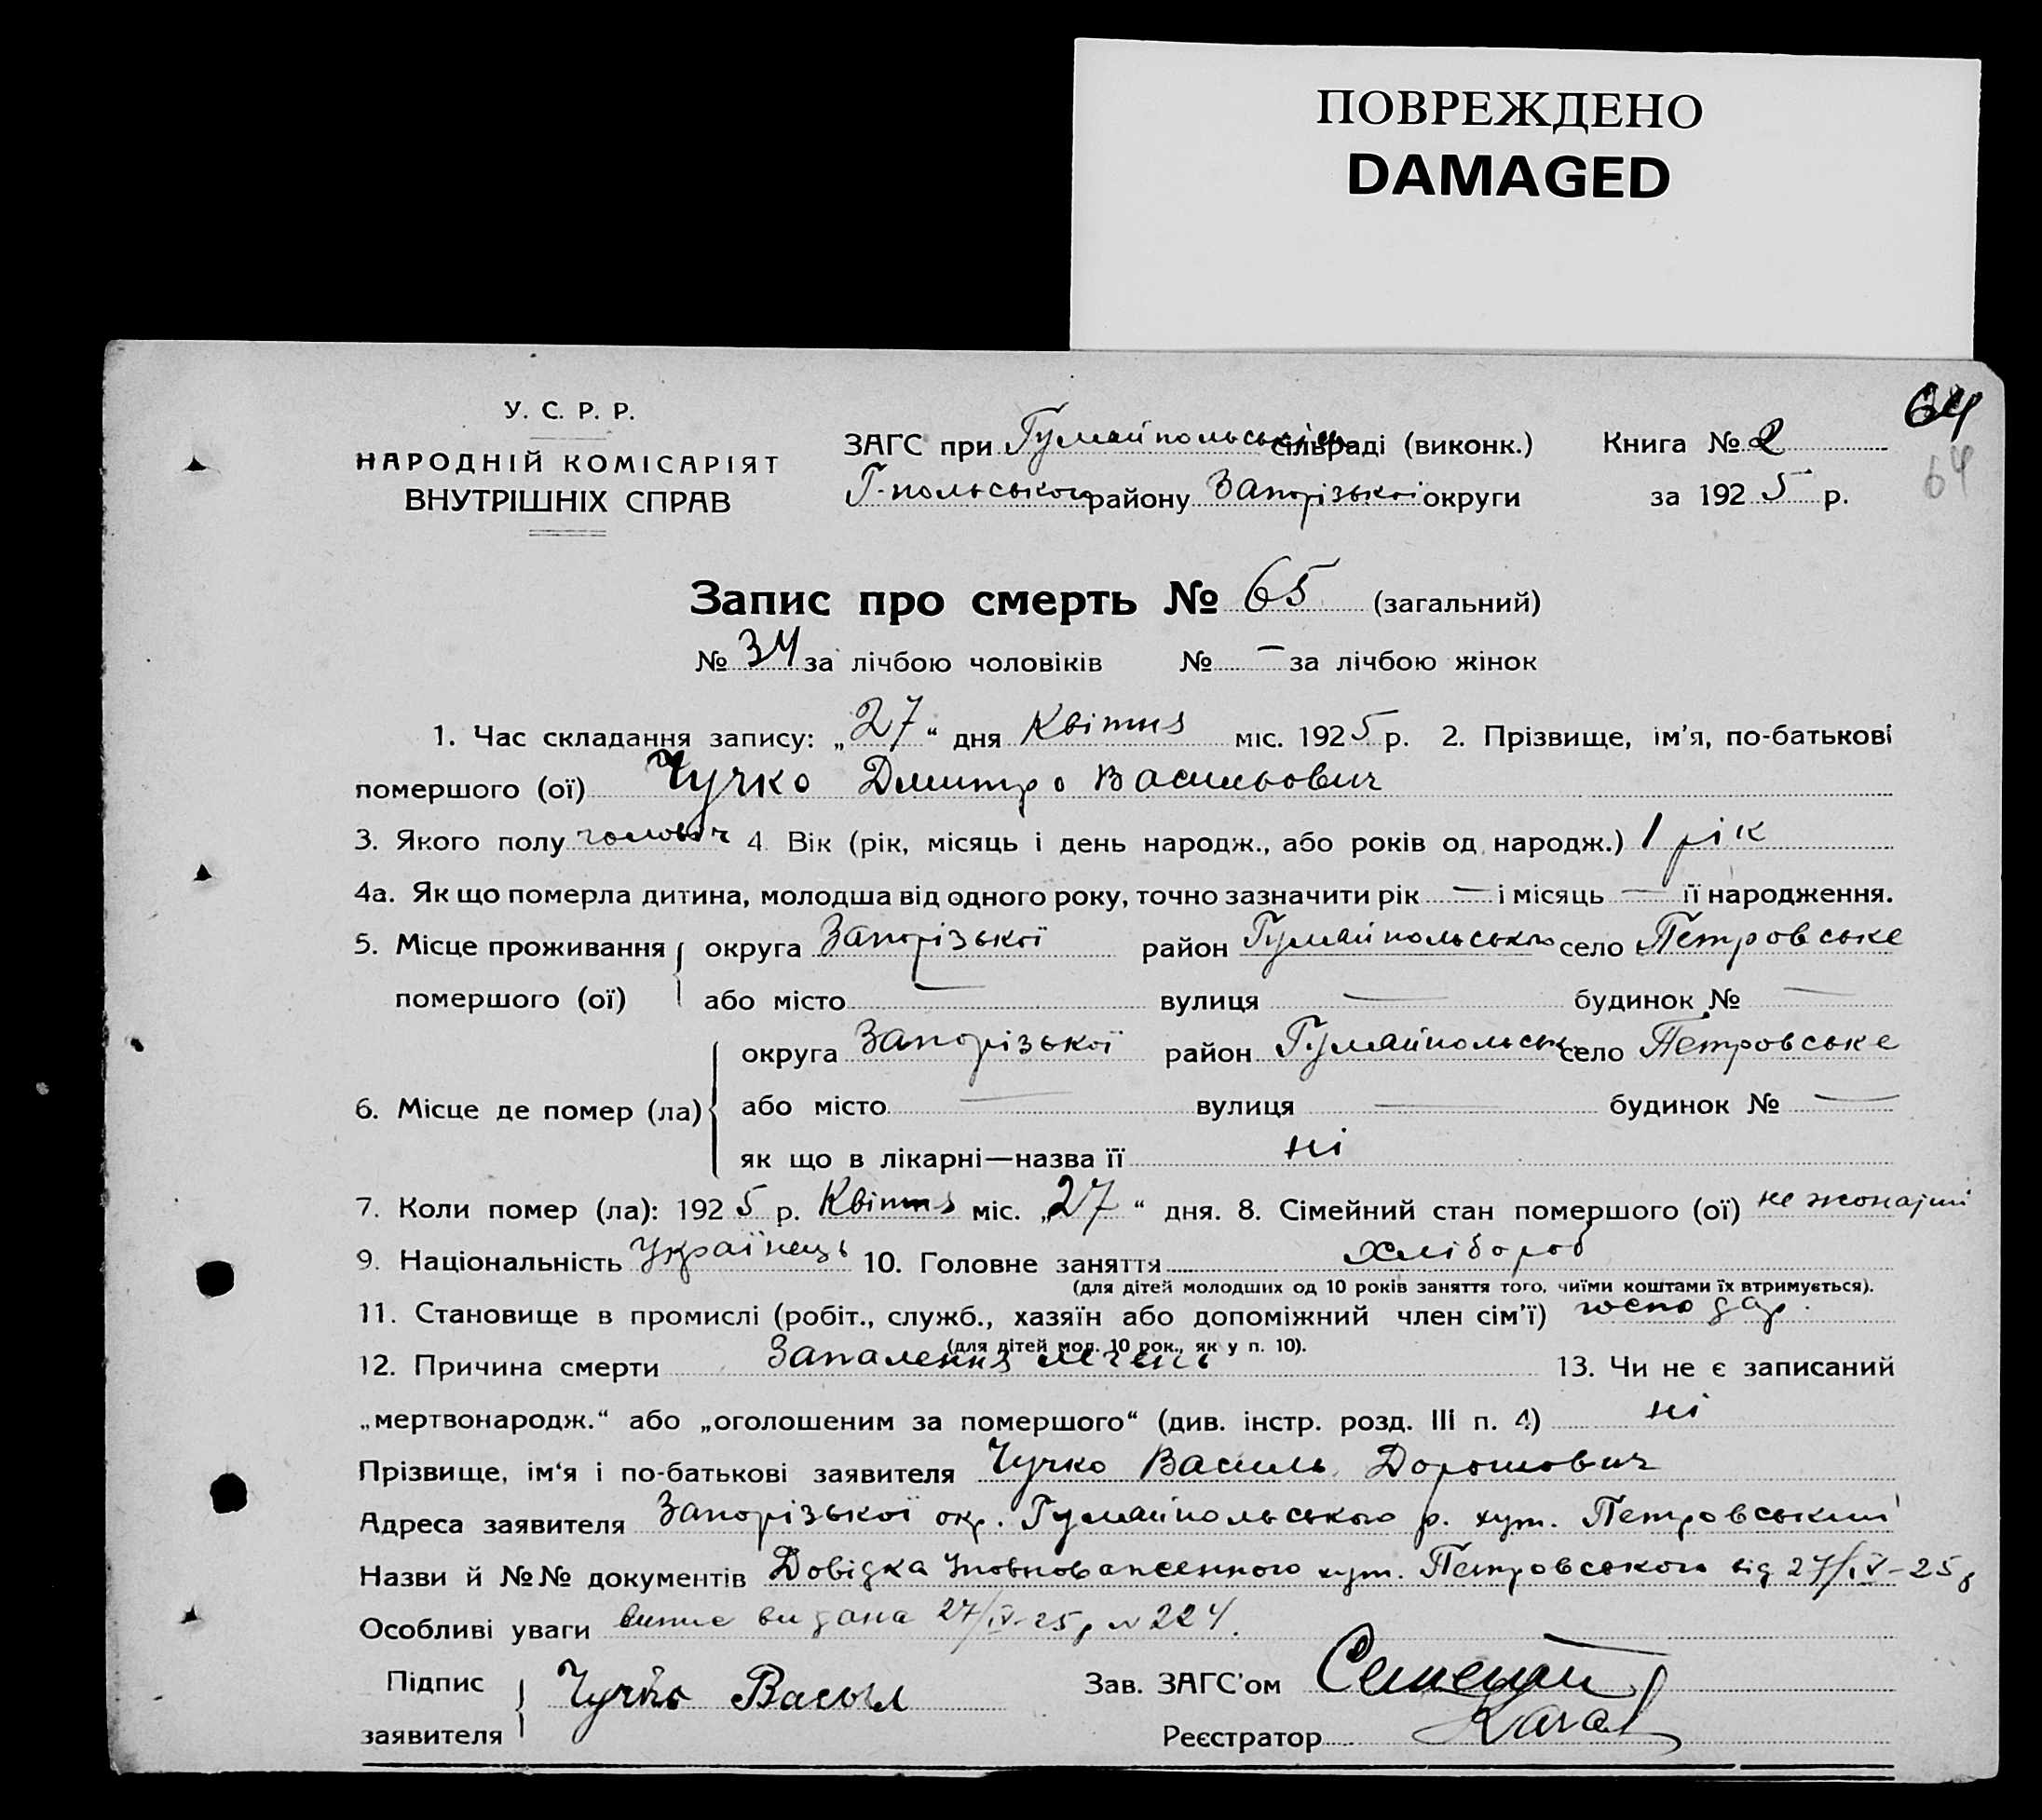 ПОВРЕЖДЕНО
DAMAGED
64
64
У. С. Р. Р.
НАРОДНІЙ КОМІСАРІЯТ
ВНУТРІШНІХ СПРАВ
ЗАГС при Гуляйпольській сільраді (виконк.) Книга № 2
Г-польського району Запорізької округи за 1925 р.
Запис про смерть № 65 (загальний)
№ 34 за лічбою чоловіків № — за лічбою жінок
1. Час складання запису: „27“ дня Квітня міс. 1925 р. 2. Прізвище, ім’я, по-батькові
помершого (ої) Чучко Дмитро Васильович
3. Якого полу чоловіч 4. Вік (рік, місяць і день народж., або років од народж.) 1 рік
4а. Як що померла дитина, молодша від одного року, точно зазначити рік — і місяць — її народження.
5. Місце проживання округа Запорізької район Гуляйпольського село Петровське
помершого (ої) або місто — вулиця — будинок № —
округа Запорізької район Гуляйпольськ село Петровське
6. Місце де помер (ла) або місто — вулиця — будинок № —
як що в лікарні—назва її ні
7. Коли помер (ла): 1925 р. Квітня міс. „27“ дня. 8. Сімейний стан помершого (ої) не жонатий
9. Національність Українець 10. Головне заняття хлібороб
(для дітей молодших од 10 років заняття того, чиїми коштами їх втримується).
11. Становище в промислі (робіт., служб., хазяїн або допоміжний член сім’ї) господар.
(для дітей мол. 10 рок., як у п. 10).
12. Причина смерти Запалення легень 13. Чи не є записаний
„мертвонародж.“ або „оголошеним за помершого“ (див. інстр. розд. III п. 4) ні
Прізвище, ім‘я і по-батькові заявителя Чучко Василь Дорошович
Адреса заявителя Запорізької окр. Гуляйпольського р. хут. Петровський
Назви й №№ документів Довідка Уповноваженного хут. Петровського від 27/IV-25 р
Особливі уваги видана 27/IV-25 р № 224.
Підпис
заявителя Чучко Васыл
Зав. ЗАГС’ом
Реєстратор